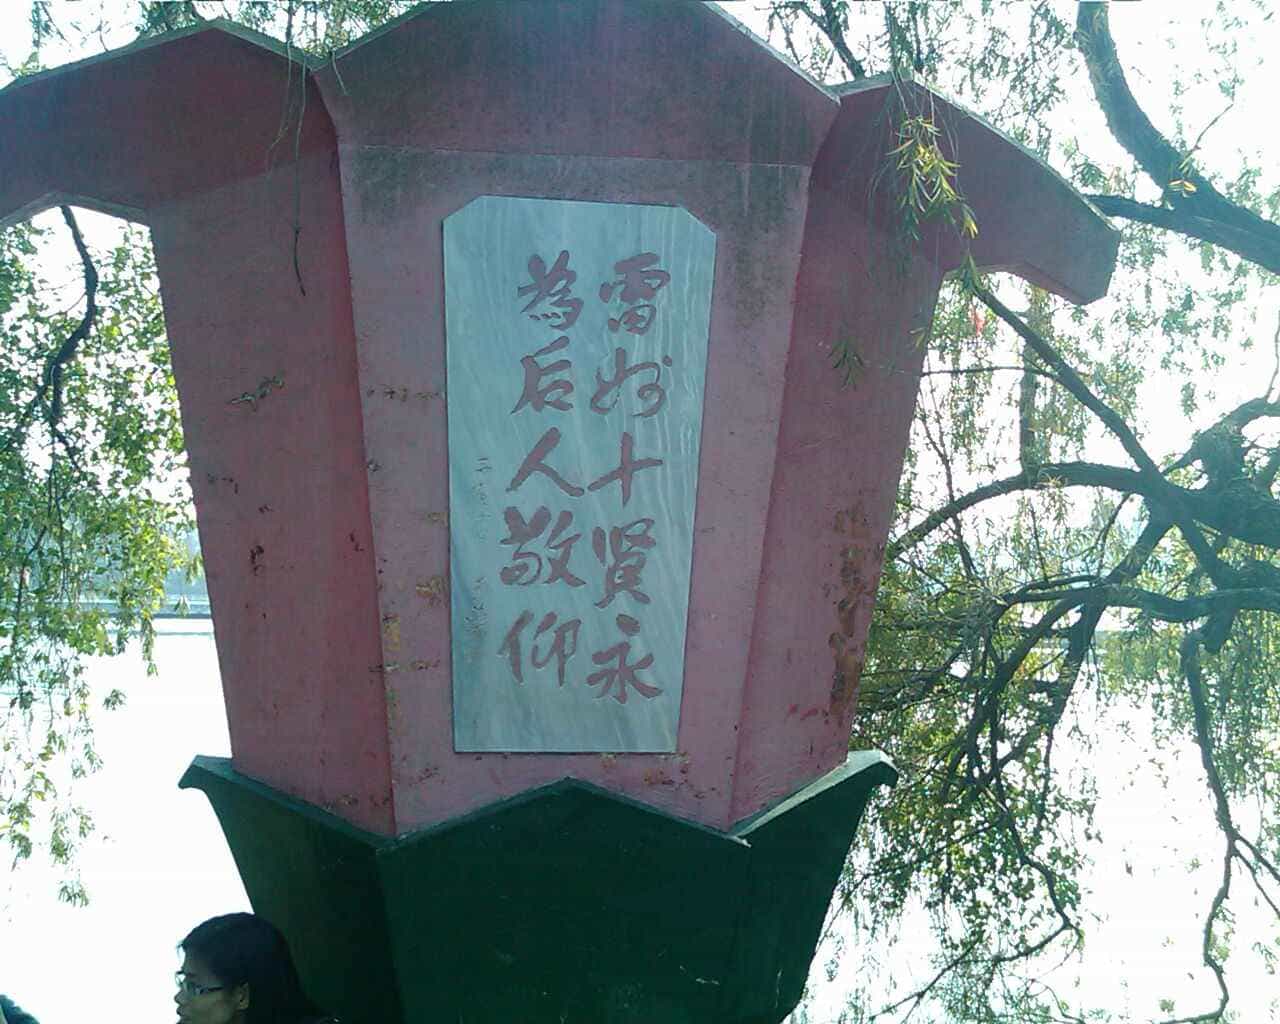 雷州十贤永
為后人敬仰